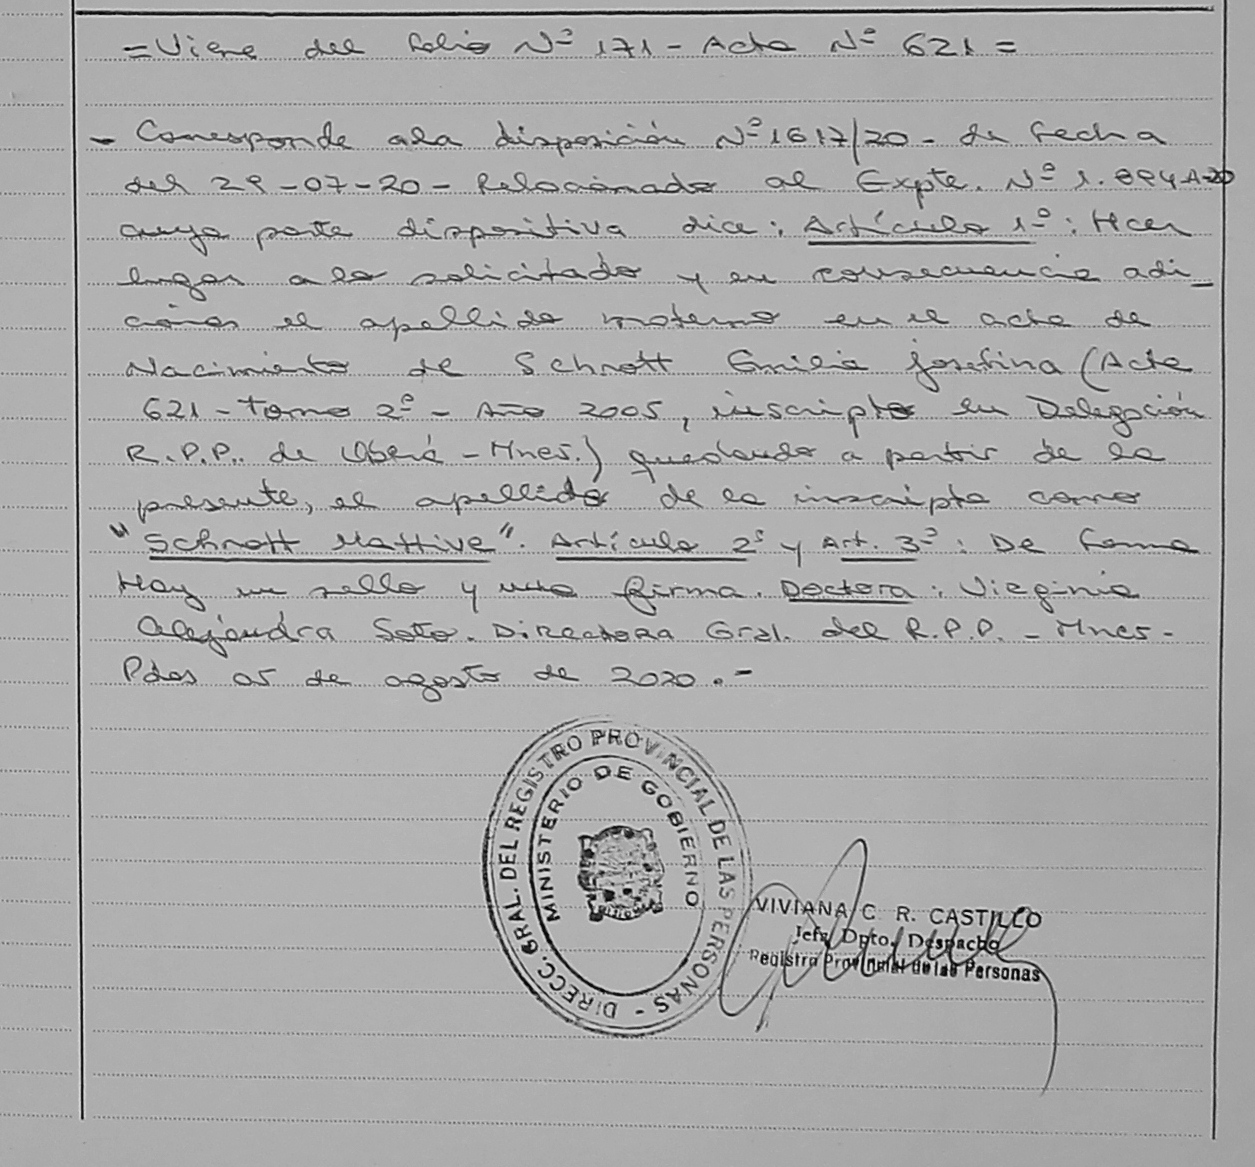 = Viene del folio Nº 171 - Acta Nº 621 =
- Corresponde a la disposición Nº 1617/20 - de fecha
del 29-07-20 - Relacionado al Expte. Nº 1.894-A-20
cuya parte dispositiva dice: Artículo 1º: Hacer
lugar a lo solicitado y en consecuencia adi_
cionar el apellido materno en el acta de
Nacimiento de Schrott Emilia Josefina (Acta
621 - Tomo 2º - Año 2005, inscripta en Delegación
R.P.P. de Oberá - Mnes.) quedando a partir de la
presente, el apellido de la inscripta como
"Schrott Mattive". Artículo 2º y Art. 3º: De forma
Hay un sello y una firma. Doctora: Virginia
Alejandra Soto. Directora Gral. del R.P.P. - Mnes -
Pdas 05 de agosto de 2020.-
DIRECC. GRAL. DEL REGISTRO PROVINCIAL DE LAS PERSONAS -
MINISTERIO DE GOBIERNO
VIVIANA C. R. CASTILLO
Jefa Dpto. Despacho
Registro Provincial de las Personas